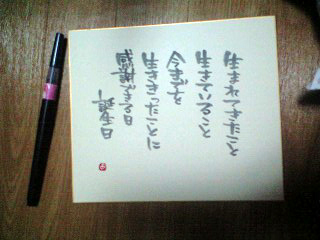 生まれてきたこと
生きていること
今まずっと
生ききったことに
感謝できる日
誕生日